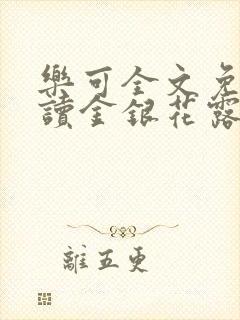 樂可全文免
讀金銀花露
離五更